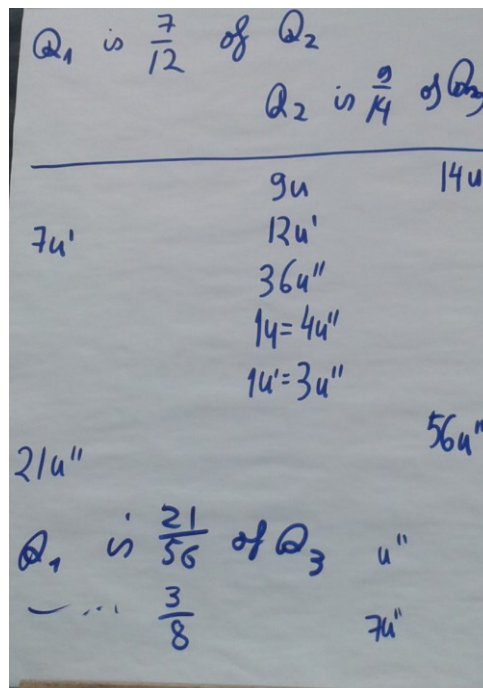 Q₁ is 7/12 of Q₂
Q₂ is 9/14 of Q₃
9u 14u
7u' 12u'
36u"
1u=4u"
1u'=3u"
56u"
21u"
Q₁ is 21/56 of Q₃ u"
— ... 3/8 7u"